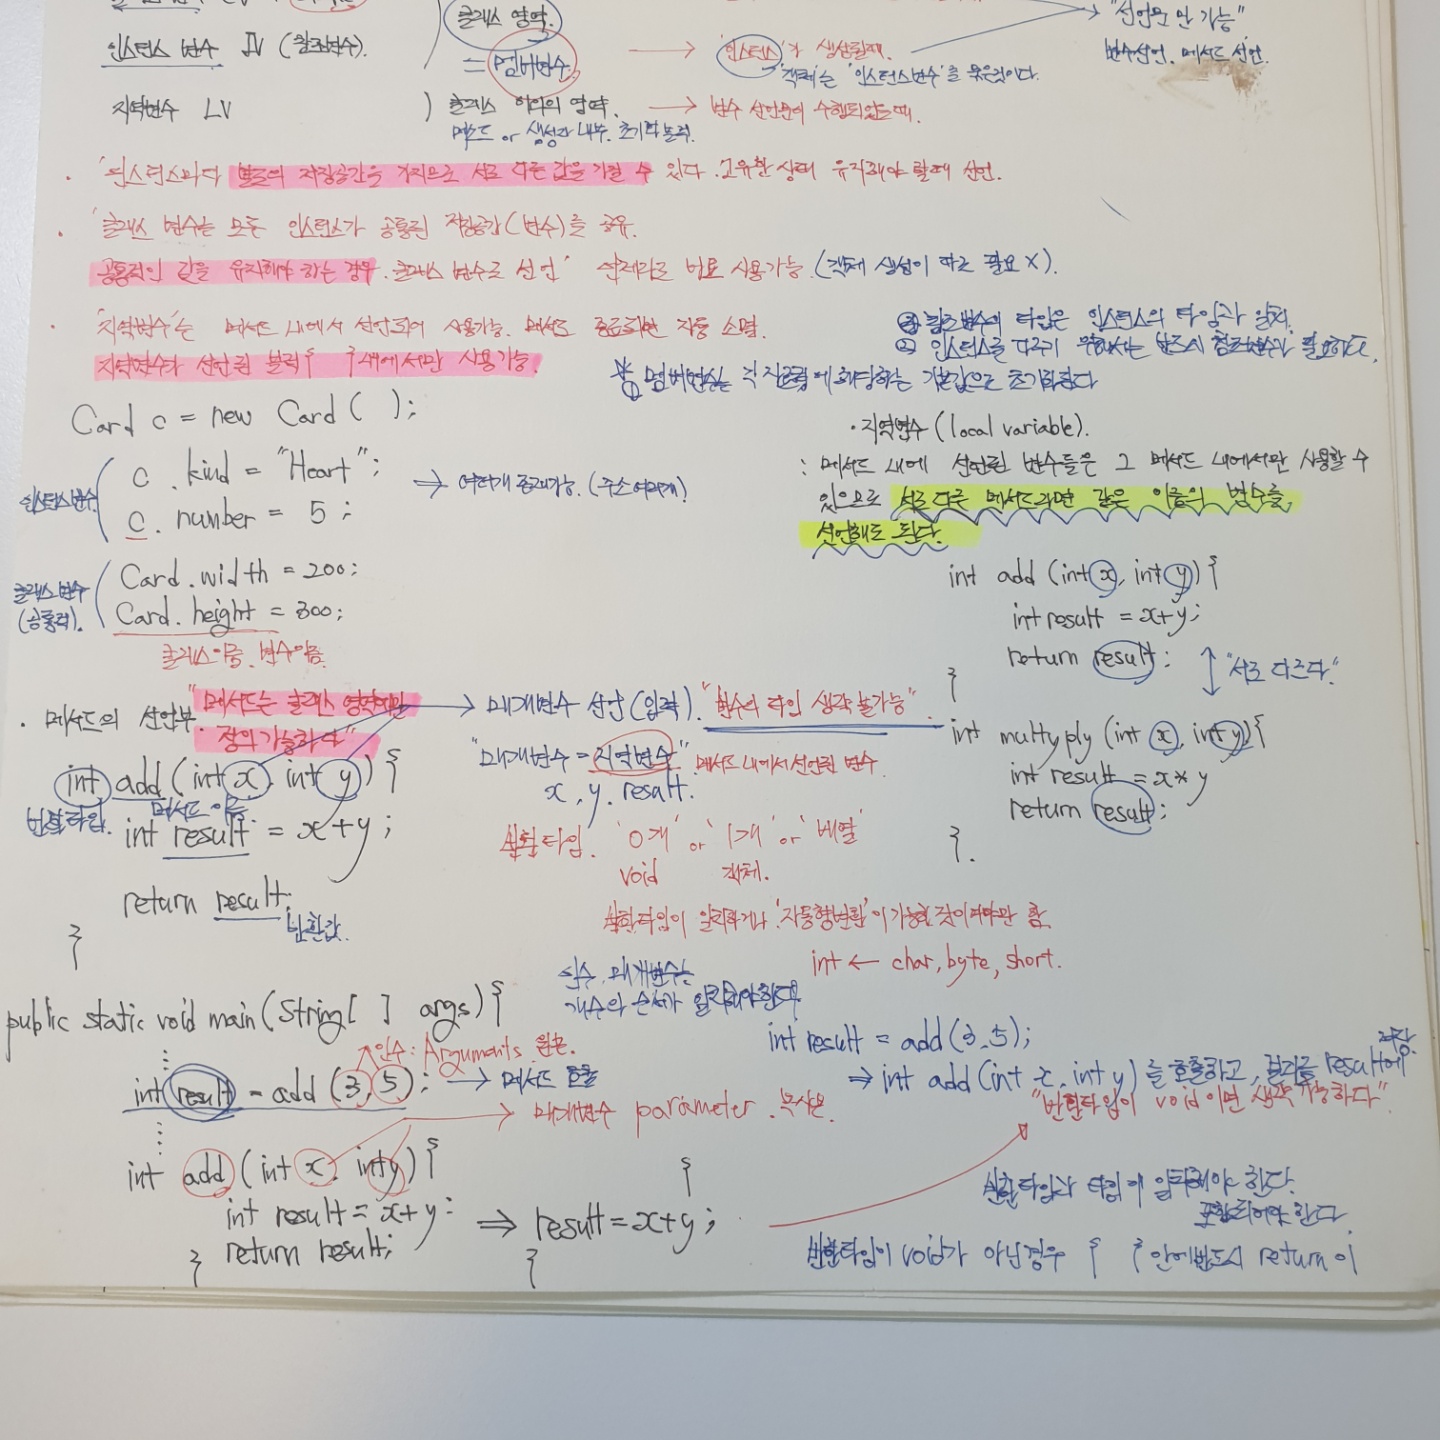 클래스 영역.
"선언문만 가능"
인스턴스 변수 IV (참조변수).
= 멤버변수.
'인스턴스'가 생성될때.
변수선언. 메서드 선언.
'객체'는 '인스턴스변수'를 묶은것이다.
지역변수 LV
클래스 이외의 영역.
변수 선언문이 수행되었을때.
메소드 or 생성자 내부. 초기화 블럭.
· '인스턴스마다 별도의 저장공간을 가지므로 서로 다른 값을 가질 수 있다. 고유한 상태 유지해야 할때 선언.
· '클래스 변수는 모든 인스턴스가 공통된 저장공간(변수)를 공유.
공통적인 값을 유지해야 하는 경우. 클래스 변수로 선언' 언제라도 바로 사용가능. (객체 생성이 따로 필요 X).
· '지역변수'는 메서드 내에서 선언되어 사용가능. 메서드 종료되면 자동 소멸.
지역변수가 선언된 블럭{ }내에서만 사용가능.
참조변수의 타입은 인스턴스의 타입과 일치.
② 인스턴스를 다루기 위해서는 반드시 참조변수가 필요하다.
※ 멤버변수는 각 자료형에 해당하는 기본값으로 초기화된다
Card c = new Card( );
인스턴스변수
c . kind = "Heart";
c . number = 5 ;
→ 여러개 존재가능. (주소 여러개)
클래스 변수
(공통적).
Card . width = 200;
Card . height = 300;
클래스이름. 변수이름.
· 지역변수 (local variable).
: 메서드 내에 선언된 변수들은 그 메서드 내에서만 사용할 수
있으므로 서로 다른 메서드라면 같은 이름의 변수를
선언해도 된다.
int add (int x, int y) {
int result = x+y;
return result;
}
"서로 다르다."
int multyply (int x, int y){
int result = x* y
return result;
}.
· 메서드의 선언부.
"메서드는 클래스 영역에만
정의가능하다"
→ 매개변수 선언(입력). "변수의 타입 생략 불가능"
"매개변수 = 지역변수" 메서드 내에서 선언된 변수
x, y. result.
int add (int x, int y) {
반환타입. 메서드 이름.
int result = x+y ;
return result;
반환값.
}
반환타입. '0개' or '1개' or '배열'
void 객체.
반환타입이 일치하거나 '자동형변환'이 가능한 것이어야만 함.
int ← char, byte, short.
인수, 매개변수는
개수와 순서가 일치해야한다.
public static void main (String[ ] args) {
인수 : Arguments. 원본.
int result = add (3, 5); → 메서드 호출
→ 매개변수 parameter. 복사본.
int add (int x, int y) {
int result = x+y;
return result;
}
⇒
{
result = x+y ;
}
int result = add (3, 5);
⇒ int add (int x, int y) 를 호출하고, 결과를 result에
저장.
"반환타입이 void 이면 생략 가능하다"
반환타입과 타입이 일치해야 한다.
포함되어야 한다
반환타입이 void가 아닌경우 { } 안에 반드시 return 이